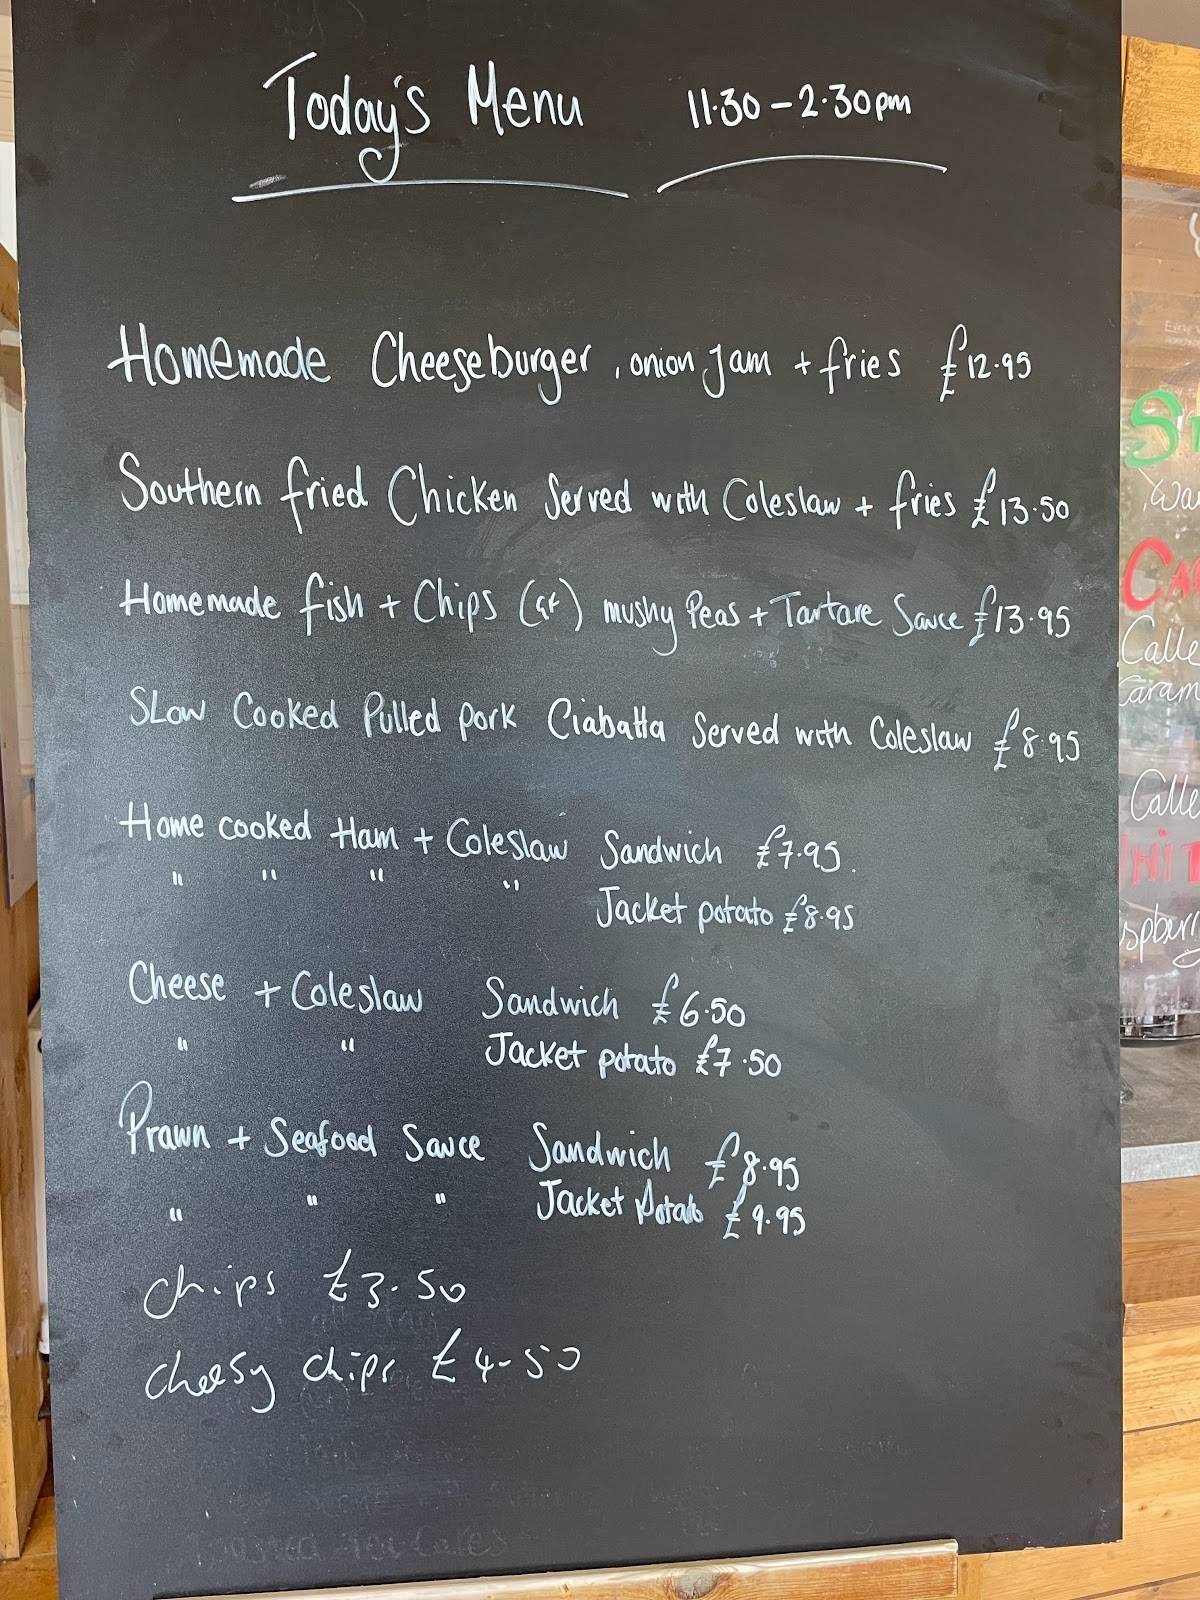 Today's Menu 11.30 - 2.30pm
Homemade Cheeseburger, onion Jam + fries £12.95
Southern fried Chicken Served with Coleslaw + fries £13.50
Homemade fish + Chips (GF) mushy Peas + Tartare Sauce £13.95
SLOW Cooked Pulled pork Ciabatta Served with Coleslaw £8.95
Home cooked Ham + Coleslaw Sandwich £7.95.
" " " " Jacket potato £8.95
Cheese + Coleslaw Sandwich £6.50
" " Jacket potato £7.50
Prawn + Seafood Sauce Sandwich £8.95
" " " Jacket Potato £9.95
chips £3-50
cheesy chips £4-50
Toasted Tea Cakes
Calle
Caram
Calle